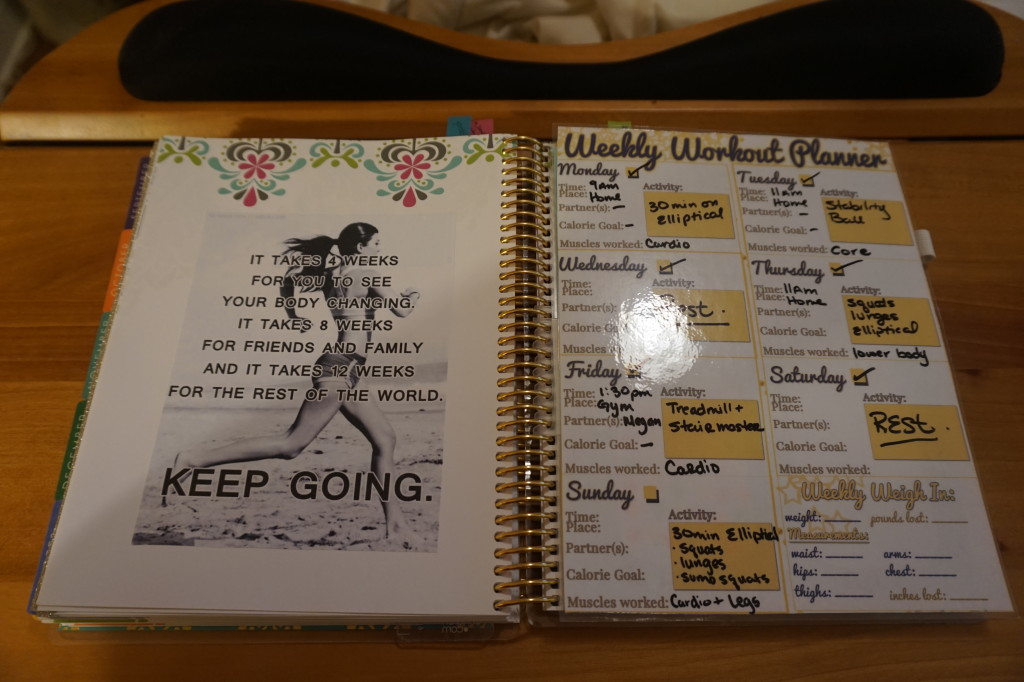 IT TAKES 4 WEEKS
FOR YOU TO SEE
YOUR BODY CHANGING.
IT TAKES 8 WEEKS
FOR FRIENDS AND FAMILY
AND IT TAKES 12 WEEKS
FOR THE REST OF THE WORLD.
KEEP GOING.
Weekly Workout Planner
Monday
Time: 9am
Place: Home
Activity:
30 min on
Elliptical
Partner(s): -
Calorie Goal: -
Muscles worked: Cardio
Tuesday
Time: 11am
Place: Home
Activity:
Stability
Ball
Partner(s): -
Calorie Goal: -
Muscles worked: Core
Wednesday
Time:
Place:
Partner(s):
Calorie
Muscles
Thursday
Time: 11am
Place: Home
Activity:
Squats
lunges
elliptical
Partner(s):
Calorie Goal:
Muscles worked: lower body
Friday
Time: 1:30pm
Place: Gym
Activity:
Treadmill +
Stairmaster
Partner(s): Megan
Calorie Goal: -
Muscles worked: Cardio
Saturday
Time:
Place:
Activity:
REST.
Partner(s):
Calorie Goal:
Muscles worked:
Sunday
Time:
Place:
Activity:
30min Elliptical
· Squats
· lunges
· sumo squats
Partner(s):
Calorie Goal:
Muscles worked: Cardio + Legs
Weekly Weigh In:
weight: pounds lost:
Measurements:
waist: arms:
hips: chest:
thighs: inches lost: